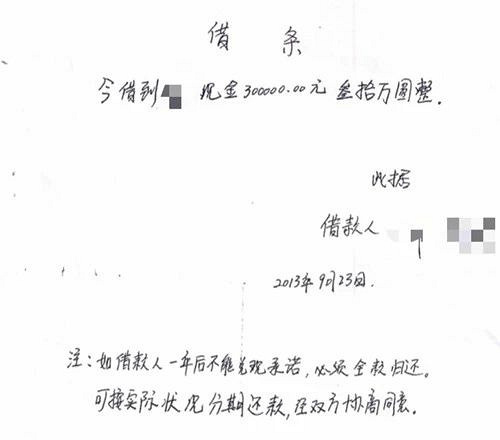 借条
今借到 现金300000.00元 叁拾万圆整.
此据
借款人
2013年9月23日.
注:如借款人一年后不能兑现承诺,必须全款归还。
可按实际状况分期还款,经双方协商同意.